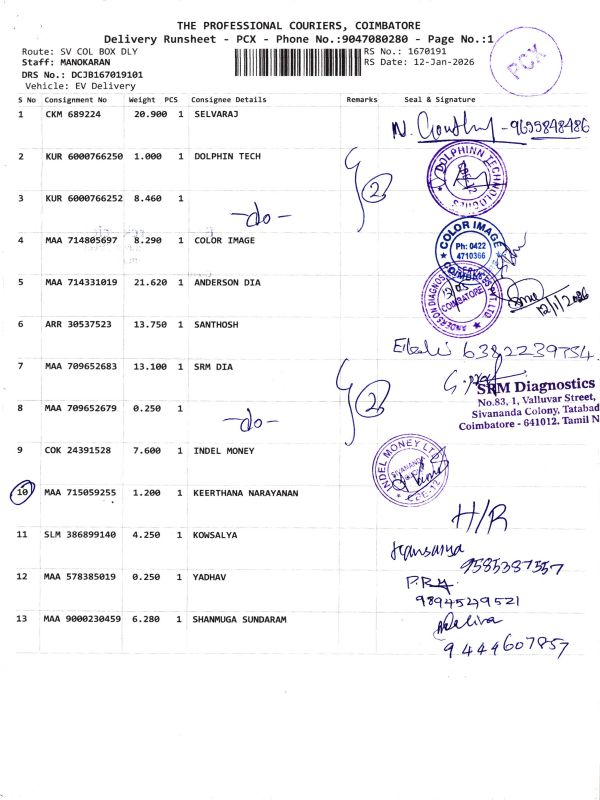 THE PROFESSIONAL COURIERS, COIMBATORE
Delivery Runsheet - PCX - Phone No.:9047080280 - Page No.:1
Route: SV COL BOX DLY
RS No.: 1670191
Staff: MANOKARAN
RS Date: 12-Jan-2026
DRS No.: DCJB167019101
Vehicle: EV Delivery
PCX
S No Consignment No Weight PCS Consignee Details Remarks Seal & Signature
1 CKM 689224 20.900 1 SELVARAJ
9655848486
2 KUR 6000766250 1.000 1 DOLPHIN TECH
2
DOLPHINN TECHNOLOGIES
3 KUR 6000766252 8.460 1
-do-
4 MAA 714805697 8.290 1 COLOR IMAGE
COLOR IMAGE
Ph: 0422
4710366
COIMBATORE
5 MAA 714331019 21.620 1 ANDERSON DIA
ANDERSON DIAGNOSTIC SERVICES PVT. LTD
COIMBATORE
12/1/2026
6 ARR 30537523 13.750 1 SANTHOSH
6382239754
7 MAA 709652683 13.100 1 SRM DIA
2
SRM Diagnostics
No.83, 1, Valluvar Street,
Sivananda Colony, Tatabad
Coimbatore - 641012. Tamil N
8 MAA 709652679 0.250 1
-do-
9 COK 24391528 7.600 1 INDEL MONEY
INDEL MONEY LTD
SIVANANDA
CBE-12
10 MAA 715059255 1.200 1 KEERTHANA NARAYANAN
H/R
11 SLM 386899140 4.250 1 KOWSALYA
9585387557
12 MAA 578385019 0.250 1 YADHAV
9894549521
13 MAA 9000230459 6.280 1 SHANMUGA SUNDARAM
9444607857